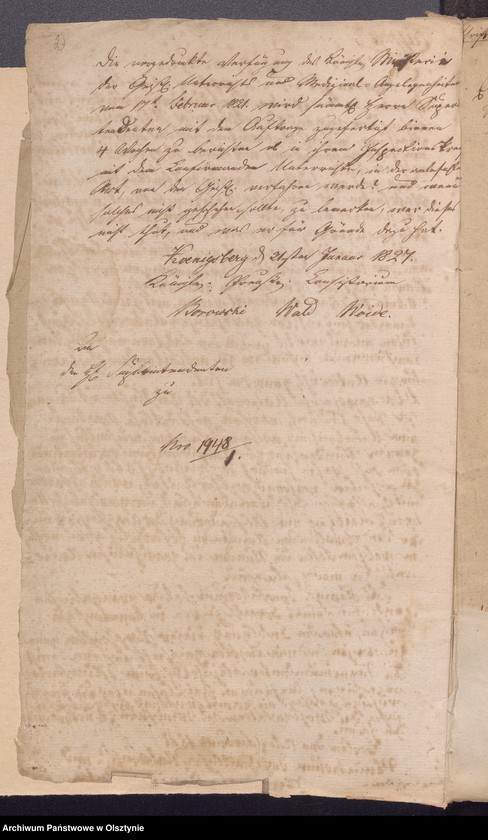 2)
Die vorgedruckte Verfügung des Königl. Ministerii
der Geistl. Unterrichts und Medizinal-Angelegenheiten
vom 17ten Februar 1821. wird sämmtl. Herrn Superin
tendenten mit dem Auftrage zugefertigt binnen
4 Wochen zu berichten, ob in ihrem Inspections
mit dem Confirmanden Unterrichte, in der
Art, von den Geistl. verfahren werde? und wenn
solches nicht geschehen sollte, zu bemerken, wer dieses
nicht thut, und was er für Gründe dazu hat.
Koenigsberg d 21sten Januar 1827.
Königl. Preuß. Consistorium
Borowski Wald Woide.
An
den H. Superintendenten
zu
Nro 1948
/1.
Archiwum Państwowe w Olsztynie